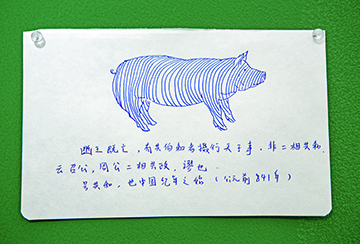 幽王既亡,有共伯和者摄行天子事,非二相共和
云召公,周公二相共政,谬也
号共和,也中国纪年之始(公元前841年)